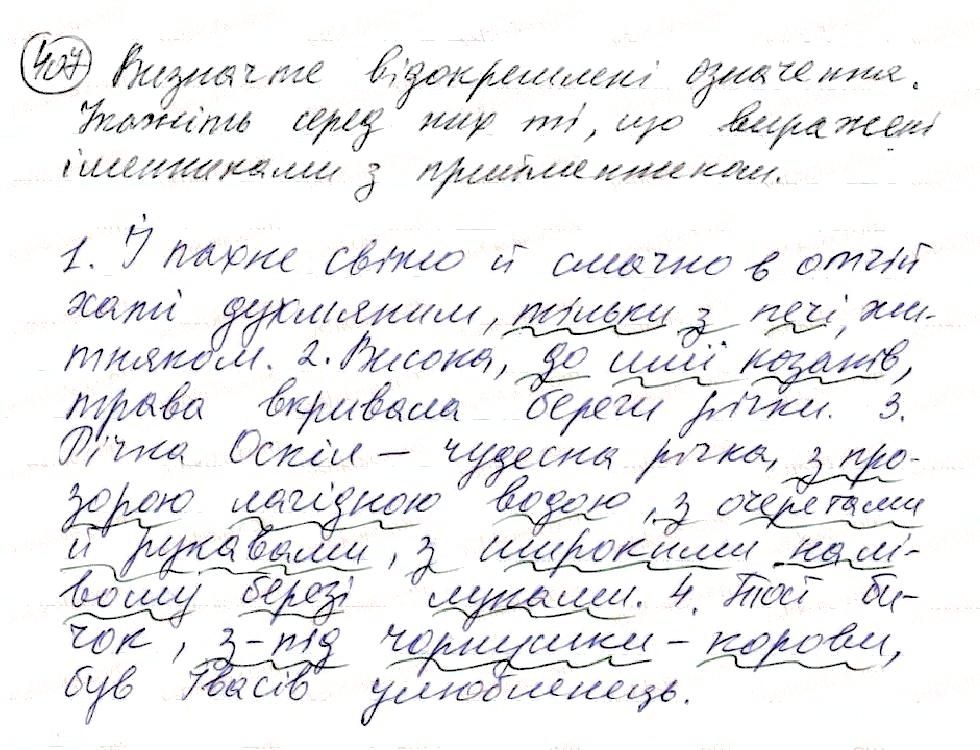 407 Визначте відокремлені означення.
Укажіть серед них ті, що виражені
іменниками з прийменником.
1. Й пахне свіжо й смачно в отчій
хаті духмяним, тільки з печі, жи-
тняком. 2. Висока, до шиї козаків,
трава вкривала береги річки. 3.
Річка Оскіл – чудесна річка, з про-
зорою лагідною водою, з очеретами
й рукавами, з широкими на лі-
вому березі луками. 4. Той би-
чок, з-під чорнушки-корови,
був Івасів улюбленець.